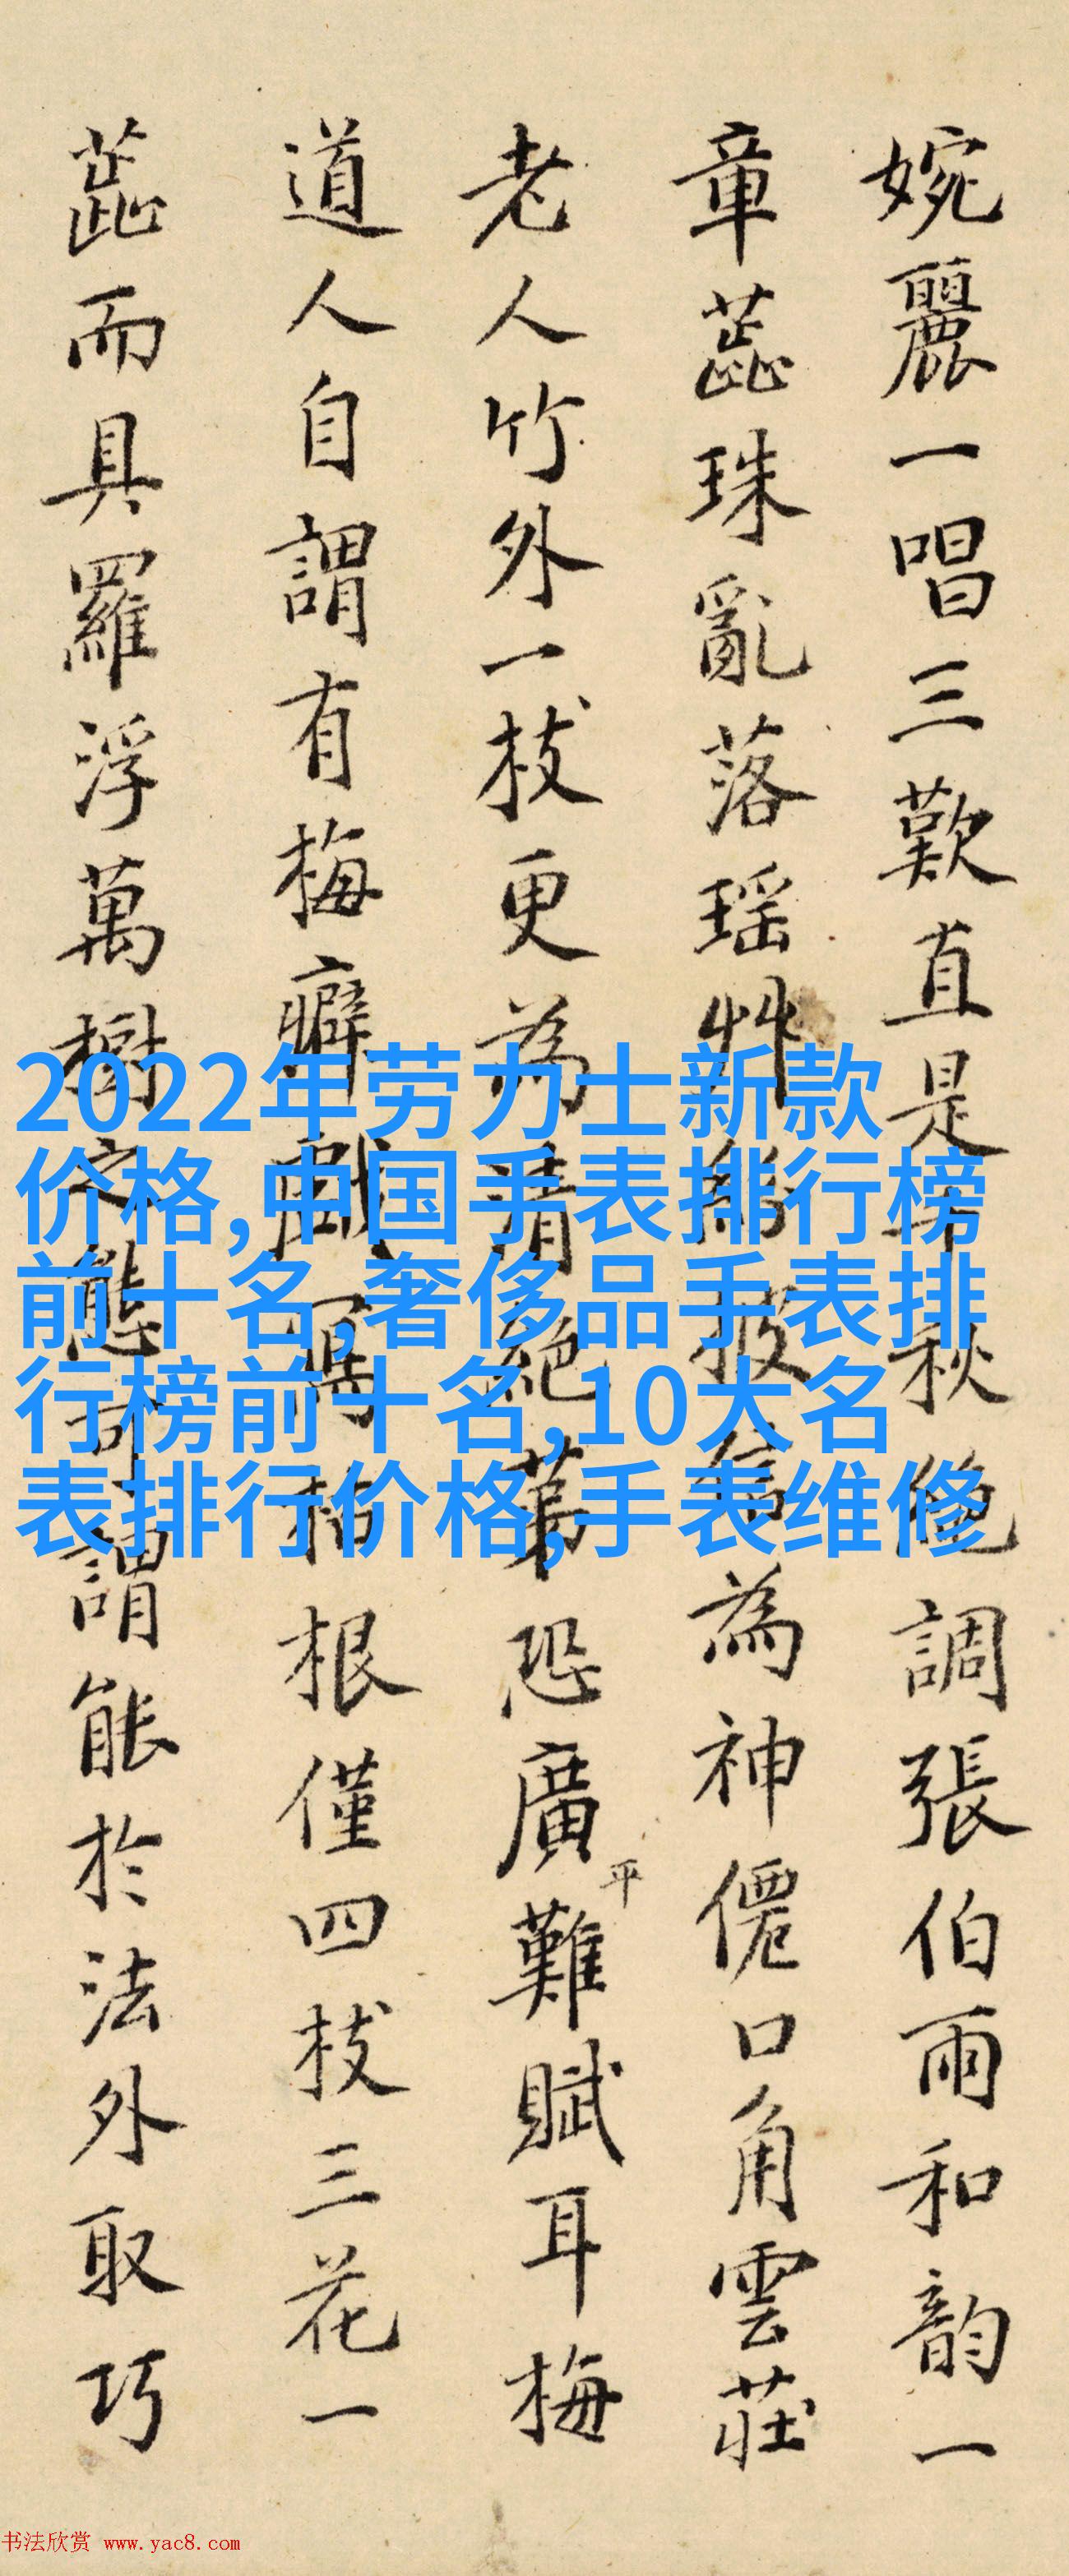 婉麗一唱三歎直是千秋絶調張伯雨和韵一
章蕊珠亂落瑶艸紛披信為神僊口角雲莊
老人竹外一枝更為清絶第恐廣平難賦耳梅
道人自謂有梅癖戲寫根僅四枝三花一
蕊而具羅浮萬樹之態可謂能於法外取巧
2022年劳力士新款
价格,中国手表排行榜
前十名,奢侈品手表排
行榜前十名,10大名
表排行价格,手表维修
书法欣赏 www.yac8.com